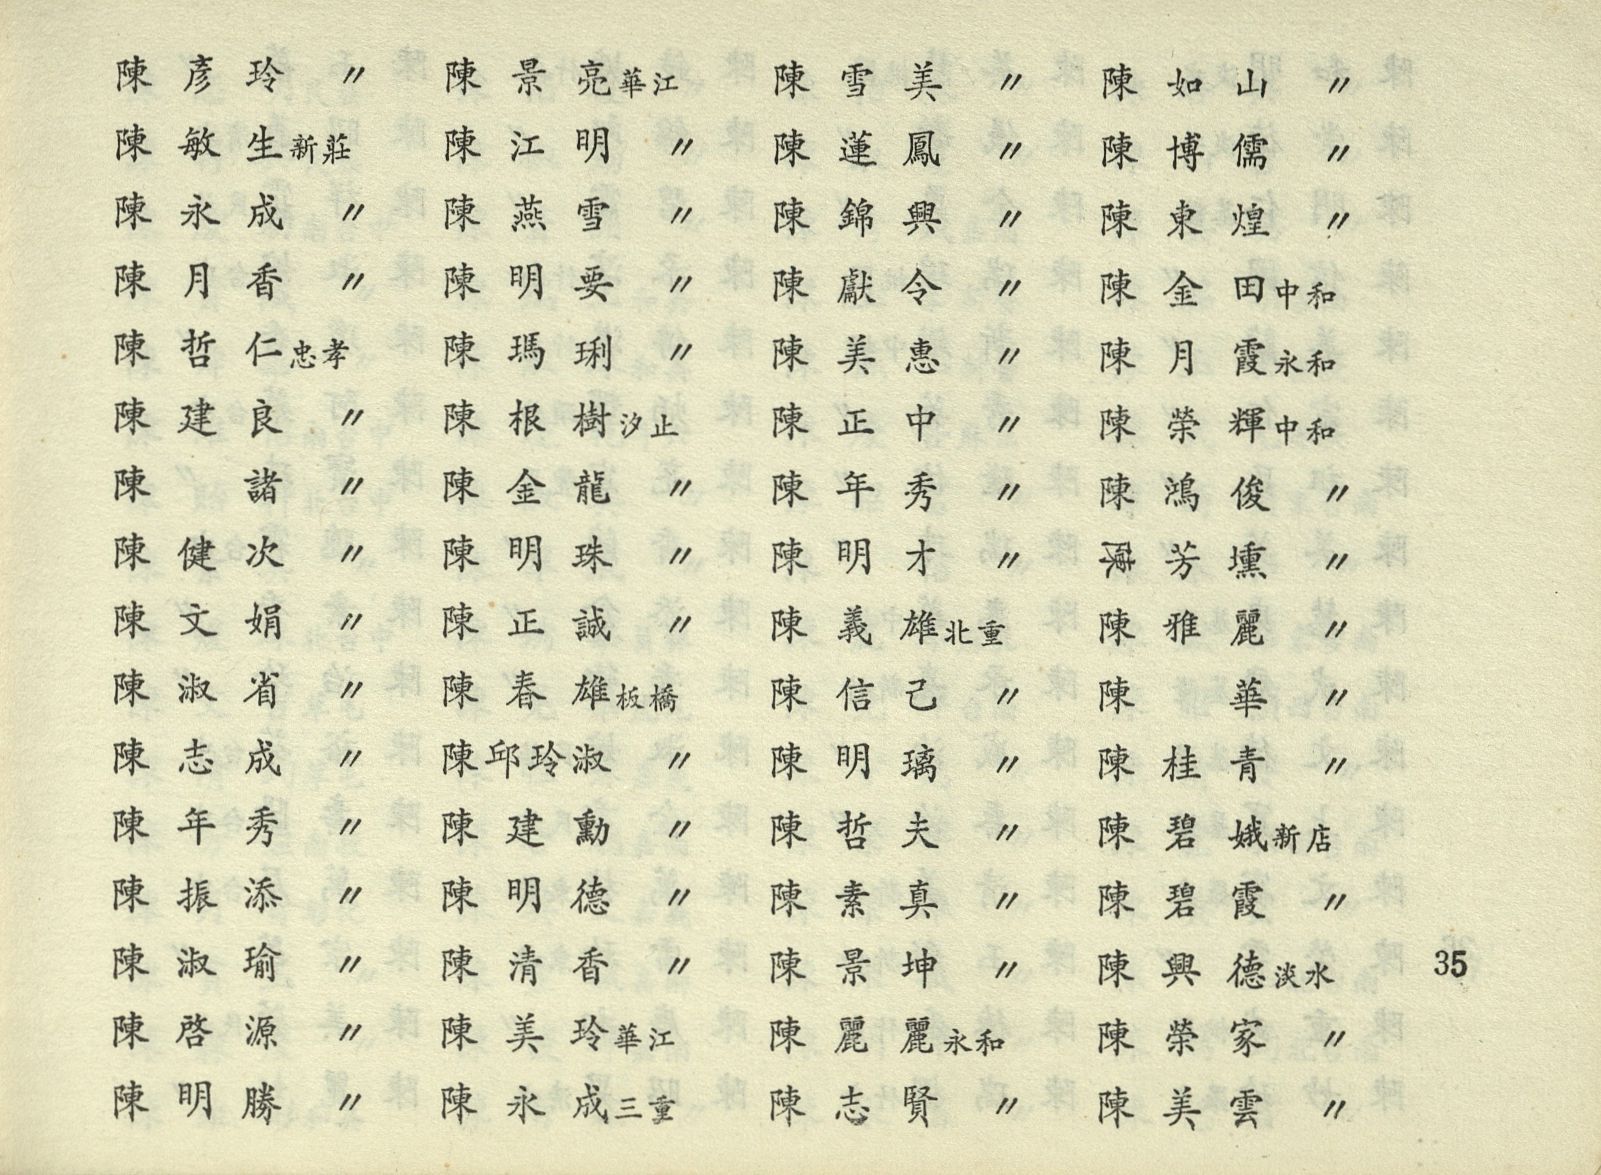 陳彥玲 〃
陳敏生 新莊
陳永成 〃
陳月香 〃
陳哲仁 忠孝
陳建良 〃
陳諸 〃
陳健次 〃
陳文娟 〃
陳淑省 〃
陳志成 〃
陳年秀 〃
陳振添 〃
陳淑瑜 〃
陳啓源 〃
陳明勝 〃
陳景亮 華江
陳江明 〃
陳燕雪 〃
陳明要 〃
陳瑪琍 〃
陳根樹 汐止
陳金龍 〃
陳明珠 〃
陳正誠 〃
陳春雄 板橋
陳邱玲淑 〃
陳建勳 〃
陳明德 〃
陳清香 〃
陳美玲 華江
陳永成 三重
陳雪美 〃
陳蓮鳳 〃
陳錦興 〃
陳獻令 〃
陳美惠 〃
陳正中 〃
陳年秀 〃
陳明才 〃
陳義雄 北重
陳信己 〃
陳明璃 〃
陳哲夫 〃
陳素真 〃
陳景坤 〃
陳麗麗 永和
陳志賢 〃
陳如山 〃
陳博儒 〃
陳東煌 〃
陳金田 中和
陳月霞 永和
陳榮輝 中和
陳鴻俊 〃
陳芳壎 〃
陳雅麗 〃
陳華 〃
陳桂青 〃
陳碧娥 新店
陳碧霞 〃
陳興德 淡水
陳榮家 〃
陳美雲 〃
35